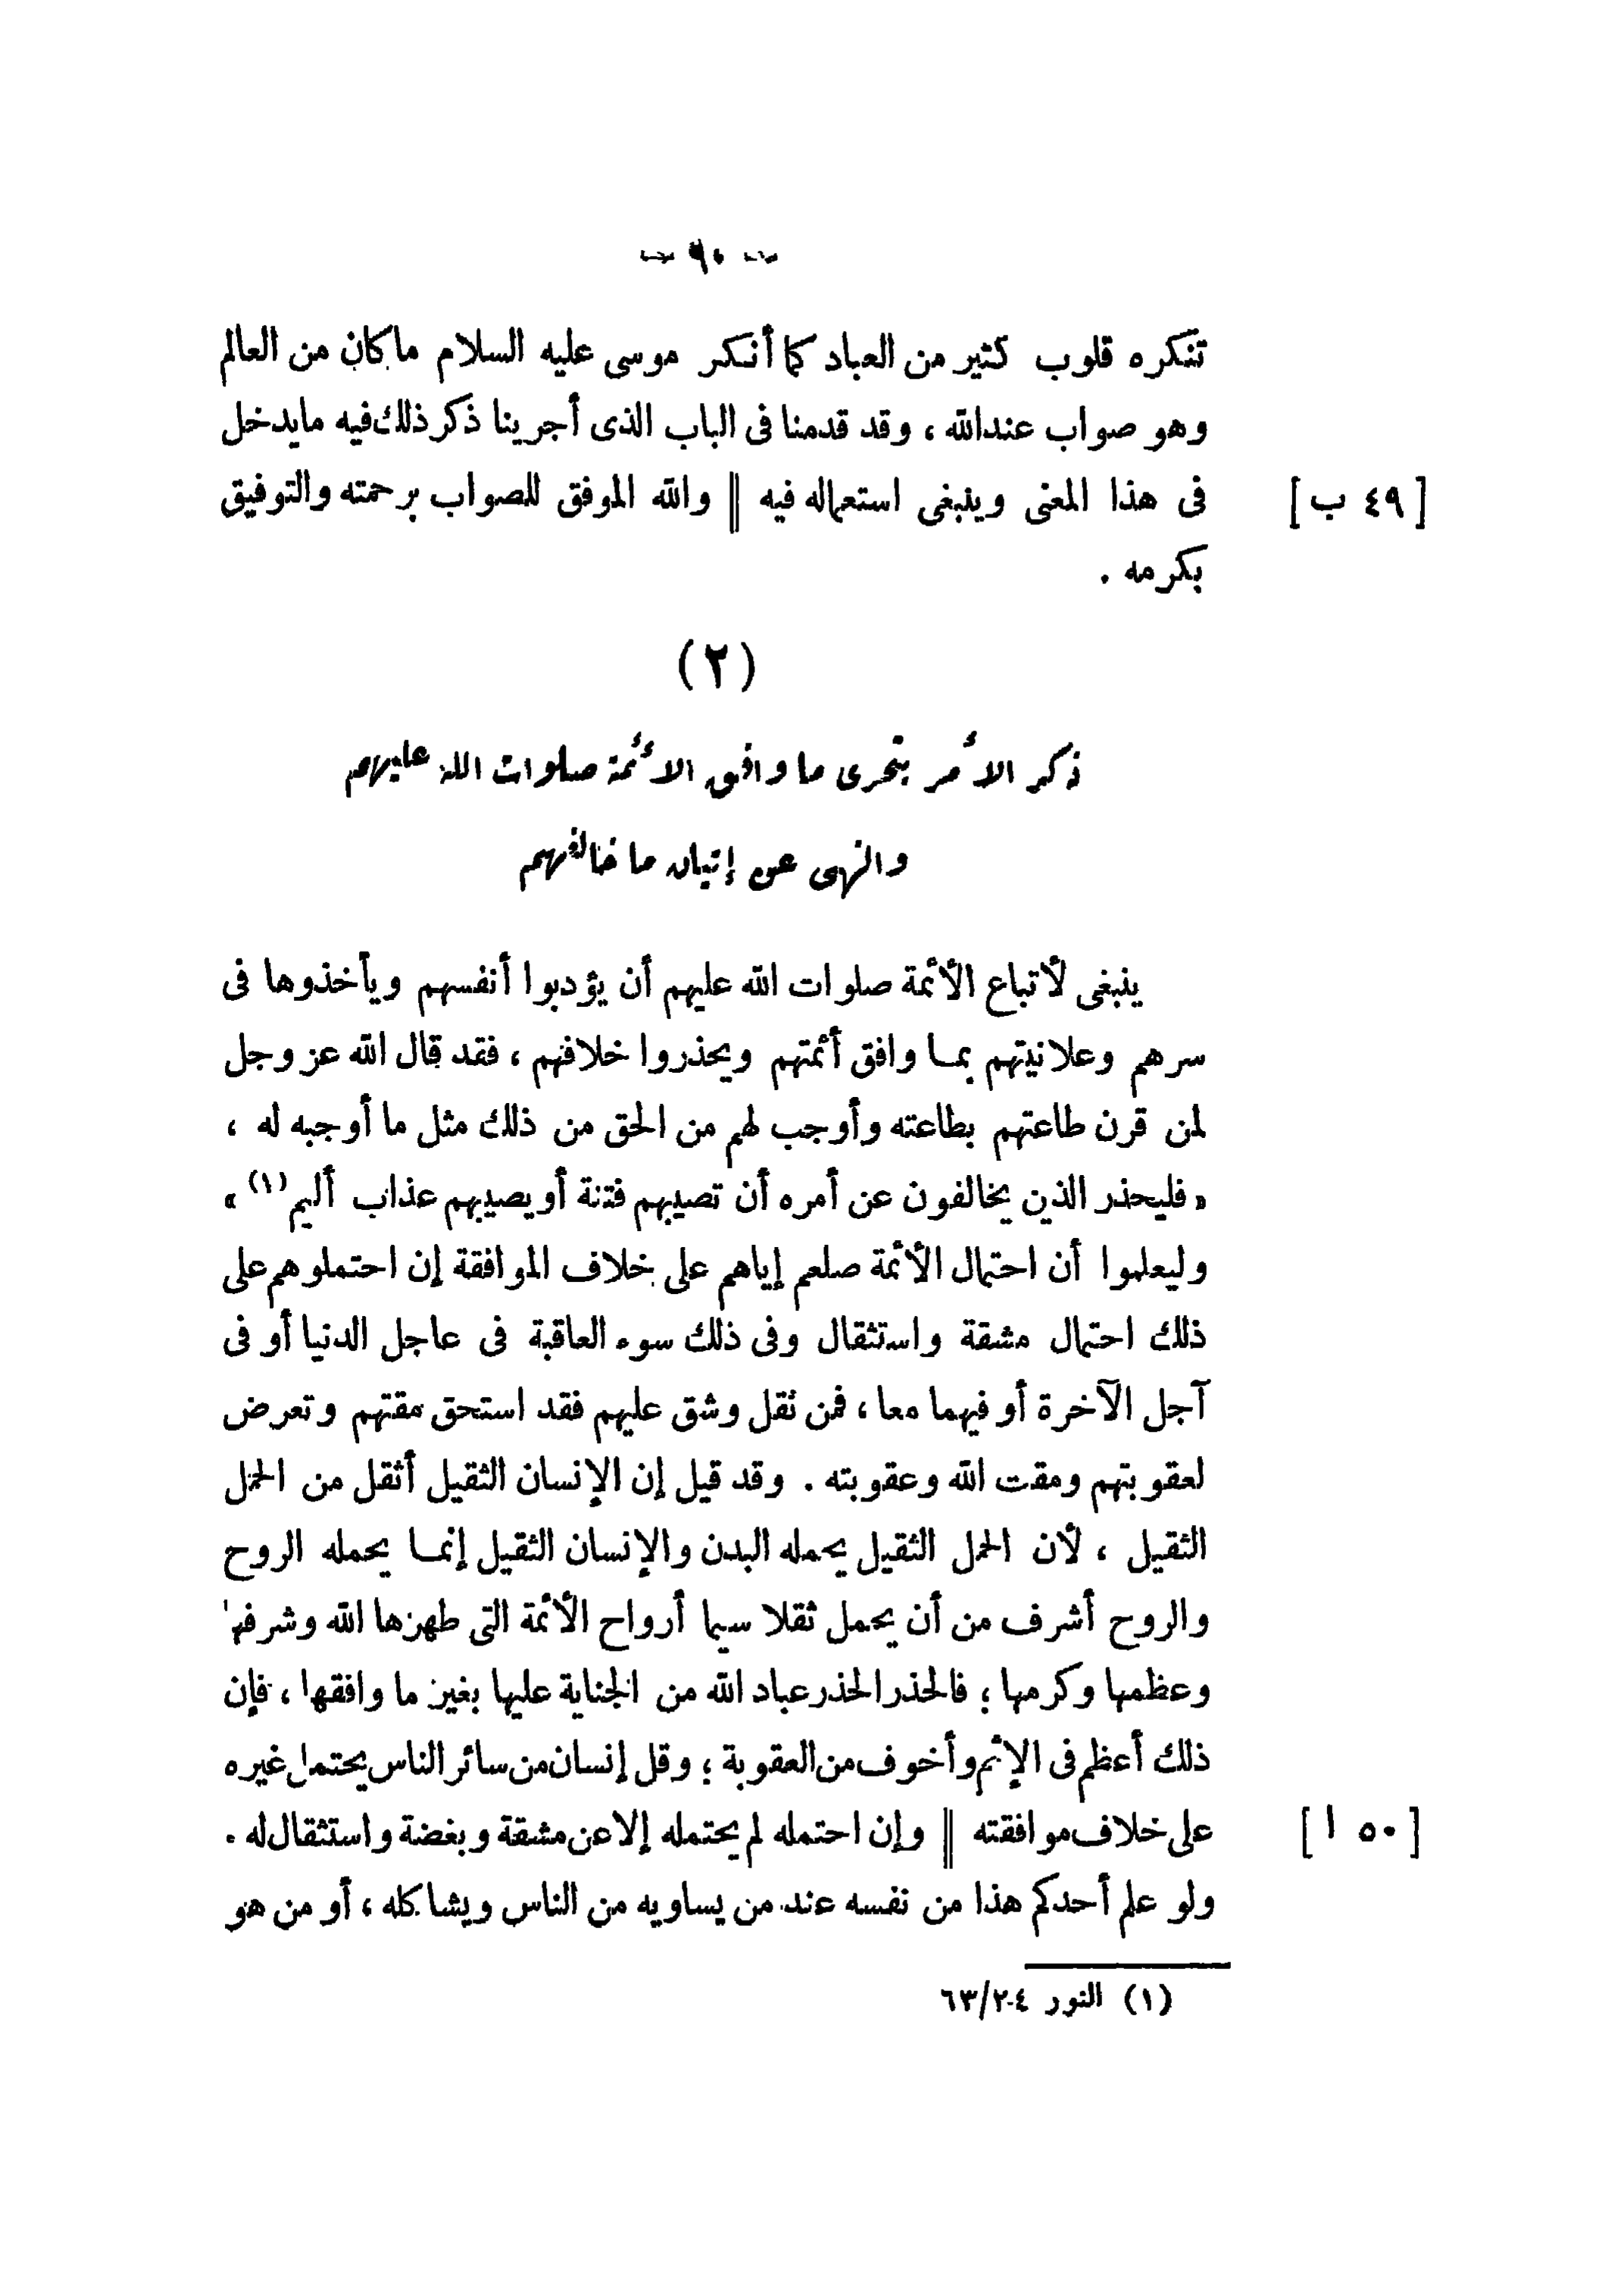 — ٩٠ —
تنكره قلوب كثير من العباد كما أنكر موسى عليه السلام ما كان من العالم
وهو صواب عند الله ، وقد قدمنا فى الباب الذى أجرينا ذكر ذلك فيه ما يدخل
فى هذا المعنى وينبغى استعماله فيه || والله الموفق للصواب برحمته والتوفيق
[ ٤٩ ب ]
بكرمه .
(٢)
ذكر الأمر بتحرى ما وافق الأئمة صلوات الله عليهم
والنهى عن إتيان ما خالفهم
ينبغى لأتباع الأئمة صلوات الله عليهم أن يؤدبوا أنفسهم ويأخذوها فى
سرهم وعلانيتهم بما وافق أئمتهم ويحذروا خلافهم ، فقد قال الله عز وجل
لمن قرن طاعتهم بطاعته وأوجب لهم من الحق من ذلك مثل ما أوجبه له ،
« فليحذر الذين يخالفون عن أمره أن تصيبهم فتنة أو يصيبهم عذاب أليم (١) »
وليعلموا أن احتمال الأئمة صلعم إياهم على خلاف الموافقة إن احتملوهم على
ذلك احتمال مشقة واستثقال وفى ذلك سوء العاقبة فى عاجل الدنيا أو فى
آجل الآخرة أو فيهما معا ، فمن ثقل وشق عليهم فقد استحق مقتهم وتعرض
لعقوبتهم ومقت الله وعقوبته . وقد قيل إن الإنسان الثقيل أثقل من الحمل
الثقيل ، لأن الحمل الثقيل يحمله البدن والإنسان الثقيل إنما يحمله الروح
والروح أشرف من أن يحمل ثقلا سيما أرواح الأئمة التى طهرها الله وشرفها
وعظمها وكرمها ؛ فالحذر الحذر عباد الله من الجناية عليها بغير ما وافقها ، فإن
ذلك أعظم فى الإثم وأخوف من العقوبة ؛ وقل إنسان من سائر الناس يحتمل غيره
على خلاف موافقته || وإن احتمله لم يحتمله إلا عن مشقة وبغضة واستثقال له .
[ ٥٠ ا ]
ولو علم أحدكم هذا من نفسه عند من يساويه من الناس ويشاكله ، أو من هو
(١) النور ٢٤/٦٣